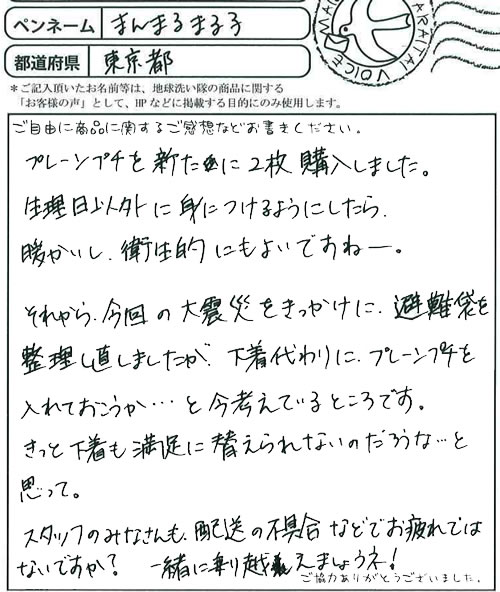 ペンネーム まんまるまる子
都道府県 東京都
＊ご記入頂いたお名前等は、地球洗い隊の商品に関する
「お客様の声」として、HPなどに掲載する目的にのみ使用します。
ご自由に商品に関するご感想などお書きください。
プレーンプチを新たに2枚購入しました。
生理日以外に身につけるようにしたら、
暖かいし、衛生的にもよいですねー。
それから、今回の大震災をきっかけに、避難袋を
整理し直しましたが、下着代わりに、プレーンプチを
入れておこうか…と今考えているところです。
きっと下着も満足に替えられないのだろうな…と
思って。
スタッフのみなさんも、配送の不具合などでお疲れでは
ないですか？ 一緒に乗り越えましょうネ！
ご協力ありがとうございました。